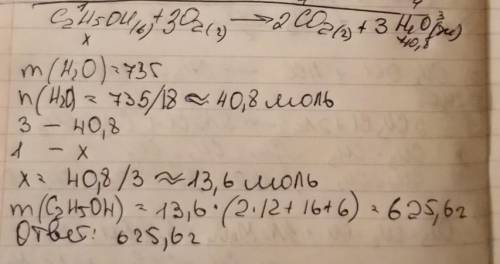 C₂H₅OH(в)+3O₂(г) → 2CO₂(г) + 3H₂O
x 40,8
m(H₂O) = 735
n(H₂O) = 735/18 ≈ 40,8 моль
3 - 40,8
1 - x
x = 40,8/3 ≈ 13,6 моль
m(C₂H₅OH) = 13,6·(2·12+16+6) = 625,6г
Ответ: 625,6г